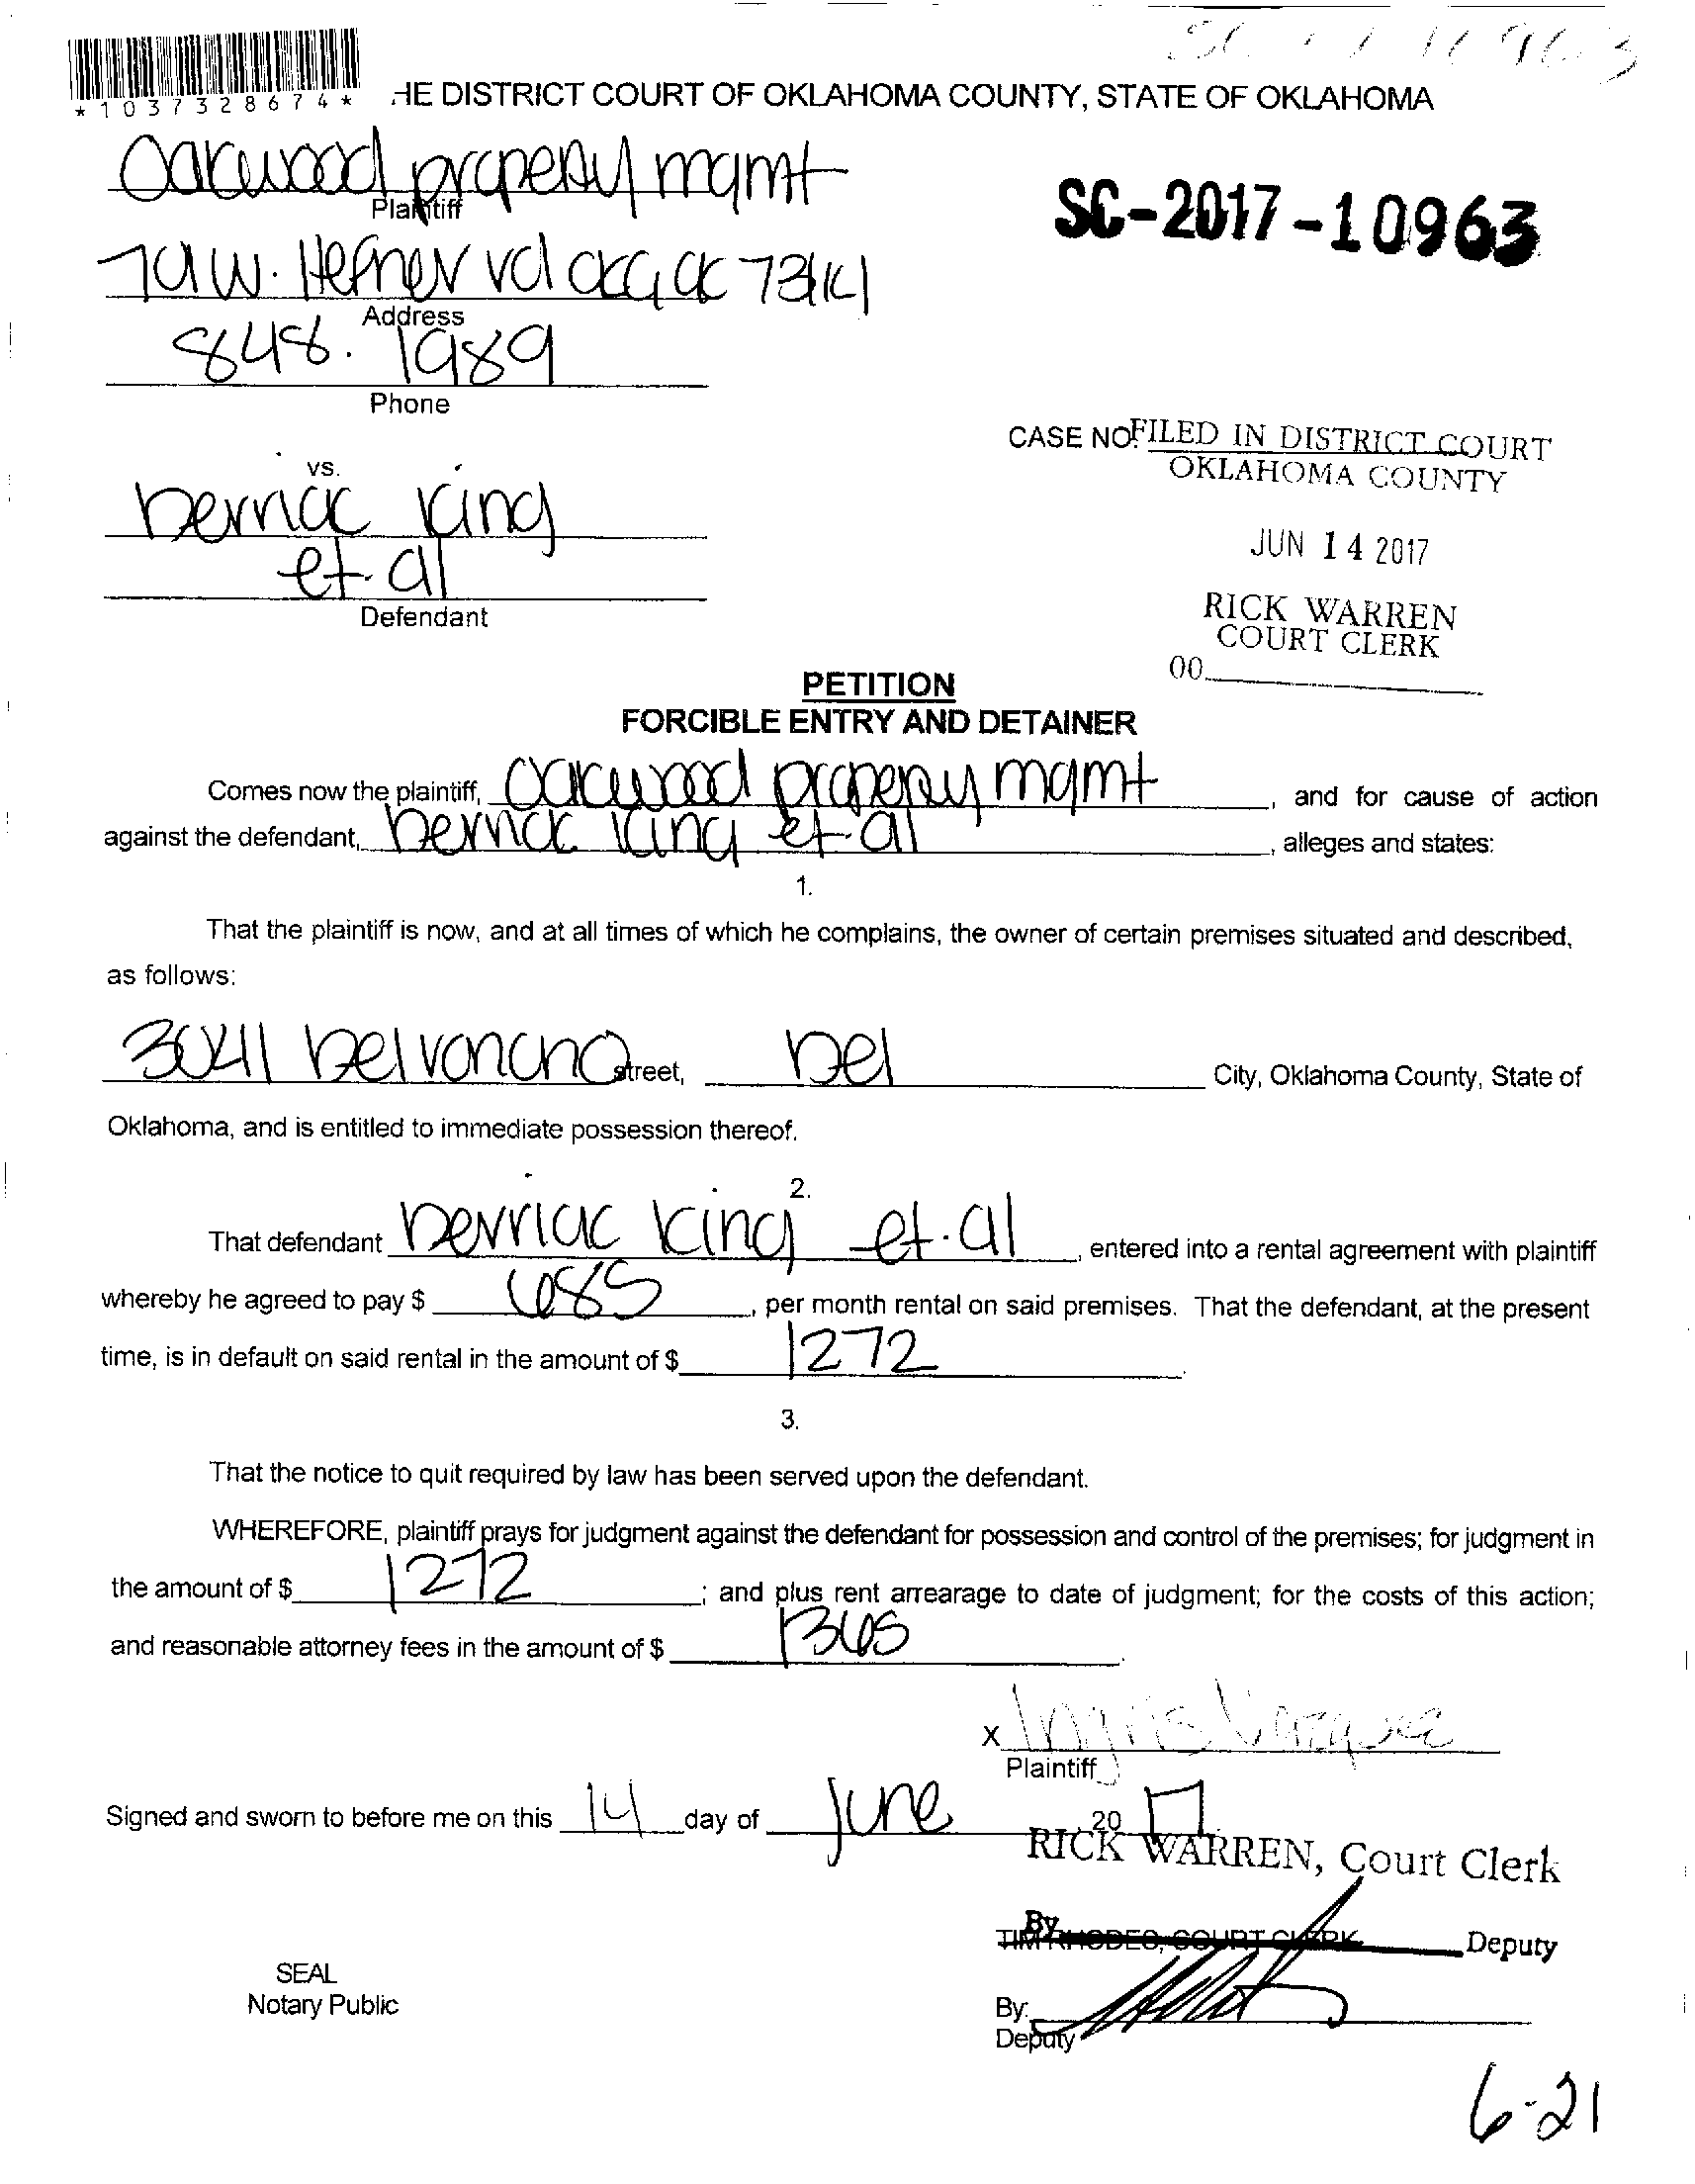 *1037328674*
HE DISTRICT COURT OF OKLAHOMA COUNTY, STATE OF OKLAHOMA
Oakwood property mgmt
Plaintiff
SC-2017-10963
W. Hefner rd okc, ok
Address
848.1989
Phone
CASE NO.
FILED IN DISTRICT COURT
OKLAHOMA COUNTY
vs.
Derrick King
et. al
Defendant
JUN 14 2017
RICK WARREN
COURT CLERK
00
PETITION
FORCIBLE ENTRY AND DETAINER
Comes now the plaintiff, Oakwood property mgmt, and for cause of action
against the defendant, Derrick King et. al, alleges and states:
1.
That the plaintiff is now, and at all times of which he complains, the owner of certain premises situated and described,
as follows:
3041 Del rancho street, Del City, Oklahoma County, State of
Oklahoma, and is entitled to immediate possession thereof.
2.
That defendant Derrick King et. al, entered into a rental agreement with plaintiff
whereby he agreed to pay $ 685, per month rental on said premises. That the defendant, at the present
time, is in default on said rental in the amount of $ 1272.
3.
That the notice to quit required by law has been served upon the defendant.
WHEREFORE, plaintiff prays for judgment against the defendant for possession and control of the premises; for judgment in
the amount of $ 1272; and plus rent arrearage to date of judgment; for the costs of this action;
and reasonable attorney fees in the amount of $ 1365.
X
Plaintiff
Signed and sworn to before me on this 14 day of June, 2017
RICK WARREN, Court Clerk
By Deputy
TIM RHODES, COURT CLERK
SEAL
Notary Public
By:
Deputy
6-21